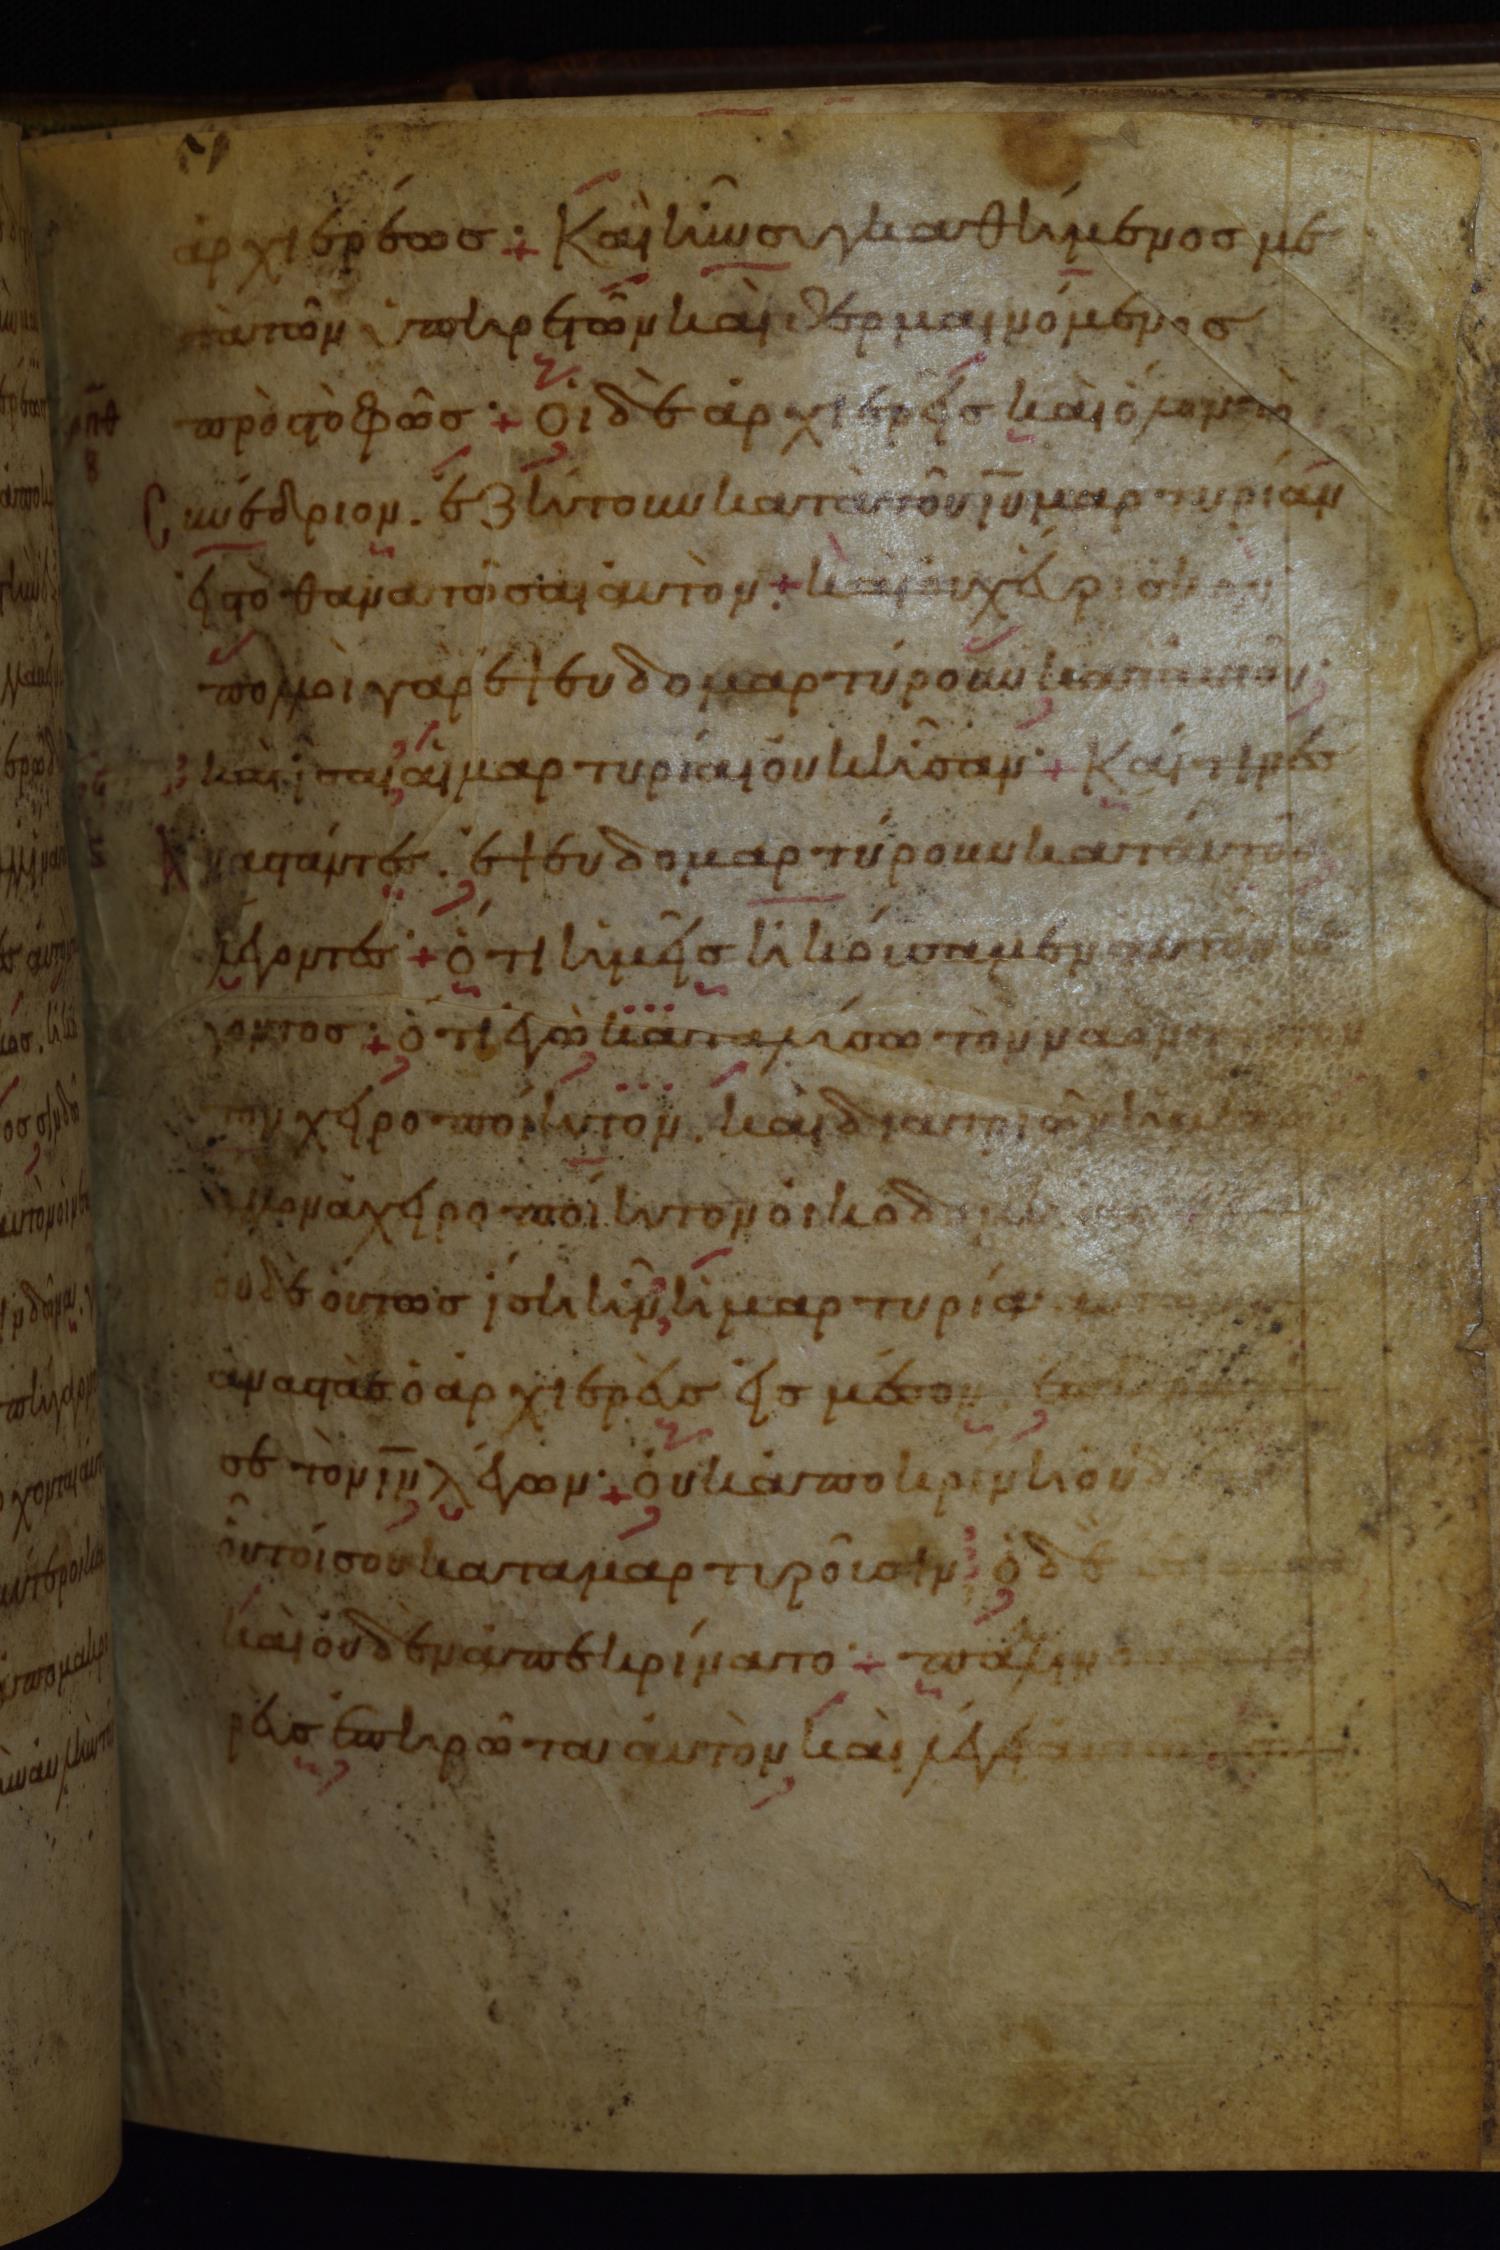 ἀρχιερέως· + Καὶ ἠῶ συγκαθήμενος με
τὰ τῶν ὑπηρετῶν καὶ θερμαινόμενος
πρὸς τὸ φῶς· + ὁι δὲ ἀρχιερές καὶ ὅλον τὸ
Cυνέδριον. ἐζήτουν κατὰ τοῦ ιυ μαρτυρίαν
εἰς τὸ θανατῶσαι ἀυτὸν· + καὶ ουχ
πολλοὶ γὰρ ἐψευδομαρτύρουν κατ αυτοῦ·
καὶ ίσαι αἱ μαρτυρίαι ὀυκ ἦσαν· + Καί τινές
ἀναστάντες. ἐψευδομαρτύρουν κατ ἀυτοῦ
λέγοντες· + ὅτι ἡμεῖς ἠκούσαμεν αυτοῦ λέ
γοντος· + ὅτι ἐγὼ καταλύσω τὸν ναὸν τουτον
τον χειροποίητον. καὶ διὰ τριῶν ἡμερῶν
ἄλλον ἀχειροποίητον οἰκοδομήσω
ουδὲ όυτως ίση ἦν ἡ μαρτυρία αυτῶν
ἀναστὰς ὁ ἀρχιερεὺς εἰς μέσον ἐπηρώτη
σε τὸν ιν λέγων· + ὀυκ ἀποκρίνη ὀυδ
οὗτοί σου καταμαρτυροῦσιν ὁ δὲ
καὶ ὀυδὲν ἀπεκρίνατο· + πάλιν
ρεὺς ἐπηρῶτα ἀυτὸν καὶ λέγει αυτῶ